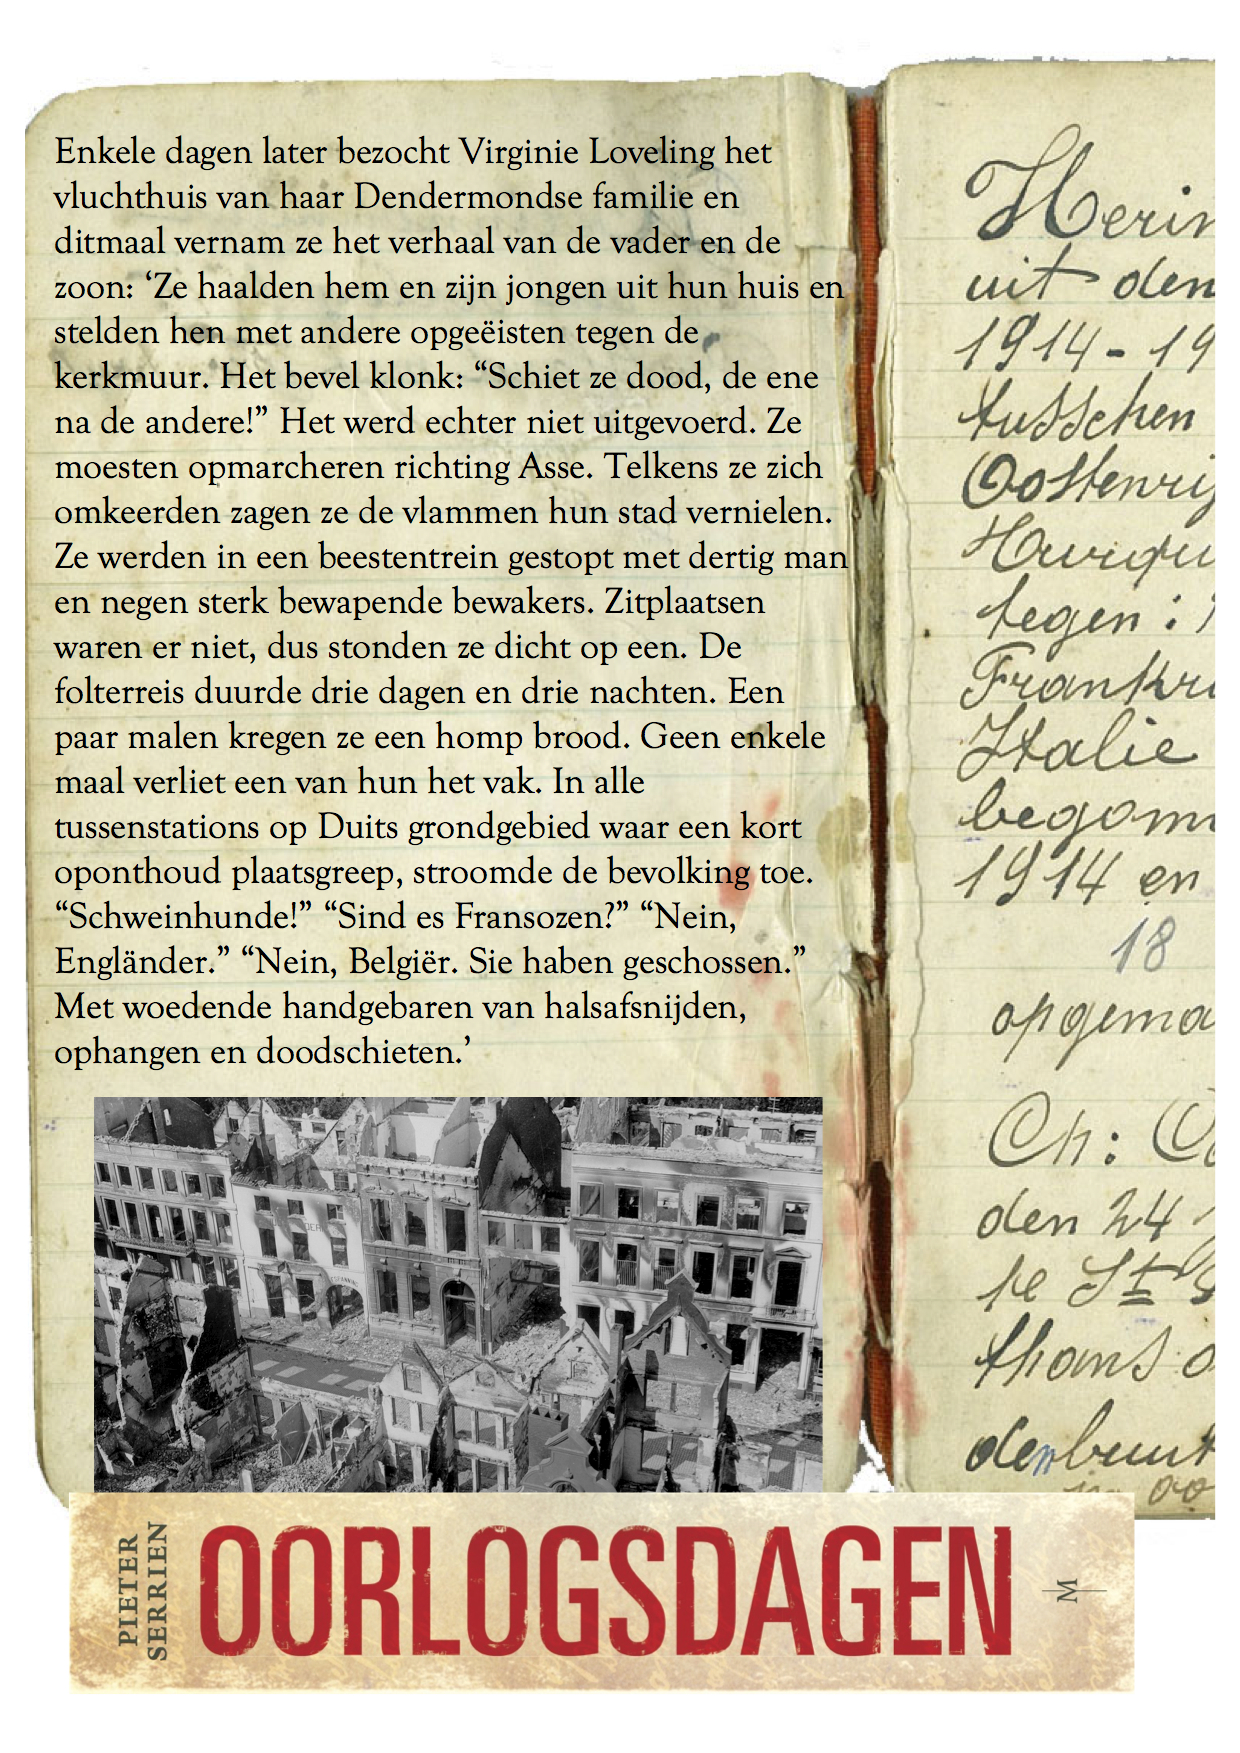 Enkele dagen later bezocht Virginie Loveling het
vluchthuis van haar Dendermondse familie en
ditmaal vernam ze het verhaal van de vader en de
zoon: ‘Ze haalden hem en zijn jongen uit hun huis en
stelden hen met andere opgeëisten tegen de
kerkmuur. Het bevel klonk: “Schiet ze dood, de ene
na de andere!” Het werd echter niet uitgevoerd. Ze
moesten opmarcheren richting Asse. Telkens ze zich
omkeerden zagen ze de vlammen hun stad vernielen.
Ze werden in een beestentrein gestopt met dertig man
en negen sterk bewapende bewakers. Zitplaatsen
waren er niet, dus stonden ze dicht op een. De
folterreis duurde drie dagen en drie nachten. Een
paar malen kregen ze een homp brood. Geen enkele
maal verliet een van hun het vak. In alle
tussenstations op Duits grondgebied waar een kort
oponthoud plaatsgreep, stroomde de bevolking toe.
“Schweinhunde!” “Sind es Fransozen?” “Nein,
Engländer.” “Nein, Belgiër. Sie haben geschossen.”
Met woedende handgebaren van halsafsnijden,
ophangen en doodschieten.’
Herin
uit den
1914-19
tusschen
Oostenrij
tegen:
Frankr
Italie
begon
1914 en
18
opgema
Ch:
den 24
PIETER
SERRIEN
OORLOGSDAGEN
M